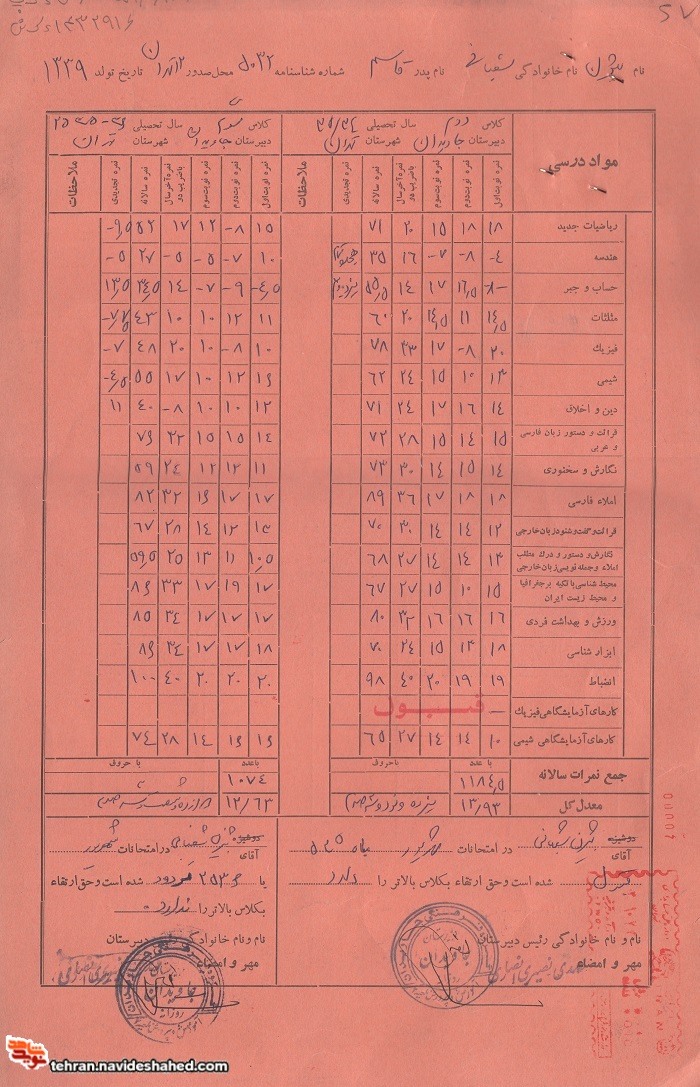 ۵۷
۱۴۳۲۹۱۶
نام بیژن نام خانوادگی شعبانی نام پدر قاسم شماره شناسنامه ۵۰۳۲ محل صدور ۱۲ تهران تاریخ تولد ۱۳۳۹
مواد درسی
کلاس دوم سال تحصیلی ۳۵/۳۴
دبیرستان جاویدان شهرستان تهران
نمره نوبت اول
نمره نوبت دوم
نمره نوبت سوم
نمره آخر سال با ضریب دو
نمره سالانه
نمره تجدیدی
ملاحظات
کلاس سوم سال تحصیلی
دبیرستان جاویدان شهرستان تهران
نمره نوبت اول
نمره نوبت دوم
نمره نوبت سوم
نمره آخر سال با ضریب دو
نمره سالانه
نمره تجدیدی
ملاحظات
ریاضیات جدید ۱۸ ۱۸ ۱۵ ۲۰ ۷۱ ۱۵ ۸- ۱۲ ۱۷ ۵۲
هندسه ۴- ۸- ۷- ۱۶ ۳۵ ۱۰ ۷- ۵- ۵- ۲۷ ۵-
حساب و جبر ۸- ۱۶٫۵ ۱۷ ۱۴ ۵۵٫۵ ۴٫۵- ۹- ۷- ۱۴ ۳۴٫۵ ۱۳٫۵
مثلثات ۱۴٫۵ ۱۱ ۱۴٫۵ ۲۰ ۶۰ ۱۱ ۱۲ ۱۰ ۱۰ ۴۳
فیزیك ۲۰ ۸- ۱۷ ۳۳ ۷۸ ۱۰ ۸- ۱۰ ۲۰ ۴۸ ۷-
شیمی ۱۳ ۱۰ ۱۵ ۲۴ ۶۲ ۱۶ ۱۲ ۱۰ ۱۷ ۵۵ ۴٫۵-
دین و اخلاق ۱۴ ۱۶ ۱۷ ۲۴ ۷۱ ۱۲ ۱۰ ۱۰ ۸- ۴۰ ۱۱
قرائت و دستور زبان فارسی و عربی ۱۵ ۱۴ ۱۵ ۲۸ ۷۲ ۱۴ ۱۵ ۱۵ ۳۲ ۷۶
نگارش و سخنوری ۱۴ ۱۵ ۱۴ ۳۰ ۷۳ ۱۱ ۱۲ ۱۲ ۲۴ ۵۹
املاء فارسی ۱۸ ۱۸ ۱۷ ۳۶ ۸۹ ۱۷ ۱۷ ۱۶ ۳۲ ۸۲
قرائت و گفت و شنود زبان خارجی ۱۲ ۱۴ ۱۴ ۳۰ ۷۰ ۱۳ ۱۲ ۱۴ ۲۸ ۶۷
نگارش و دستور و درك مطلب املاء و جمله نویسی زبان خارجی ۱۳ ۱۴ ۱۴ ۲۷ ۶۸ ۱۰٫۵ ۱۱ ۱۳ ۲۵ ۵۹٫۵
محیط شناسی با تکیه بر جغرافیا و محیط زیست ایران ۱۵ ۱۰ ۱۵ ۲۷ ۶۷ ۱۷ ۱۹ ۱۷ ۳۳ ۸۶
ورزش و بهداشت فردی ۱۶ ۱۶ ۱۶ ۳۲ ۸۰ ۱۷ ۱۷ ۱۷ ۳۴ ۸۵
ابزار شناسی ۱۸ ۱۳ ۱۵ ۲۴ ۷۰ ۱۸ ۱۷ ۱۷ ۳۴ ۸۶
انضباط ۱۹ ۱۹ ۲۰ ۴۰ ۹۸ ۲۰ ۲۰ ۲۰ ۴۰ ۱۰۰
کارهای آزمایشگاهی فیزیك قبول
کارهای آزمایشگاهی شیمی ۱۰ ۱۴ ۱۴ ۲۷ ۶۵ ۱۶ ۱۶ ۱۴ ۲۸ ۷۴
جمع نمرات سالانه با عدد ۱۱۸۴٫۵ با حروف با عدد ۱۰۷۴ با حروف
معدل کل ۱۳/۹۳ سیزده و نود و سه صدم ۱۲/۶۳ دوازده و شصت و سه صدم
دوشیزه
آقای بیژن شعبانی در امتحانات شهریور ماه ۲۵۳۵
قبول شده است و حق ارتقاء بکلاس بالاتر را دارد
نام و نام خانوادگی رئیس دبیرستان
مهر و امضاء مهدی نصیری انصاری
دوشیزه
آقای بیژن شعبانی در امتحانات شهریور
ماه ۲۵۳۶ مردود شده است و حق ارتقاء
بکلاس بالاتر را ندارد
نام و نام خانوادگی رئیس دبیرستان
مهر و امضاء
جاویدان
جاویدان
نوید شاهد
tehran.navideshahed.com